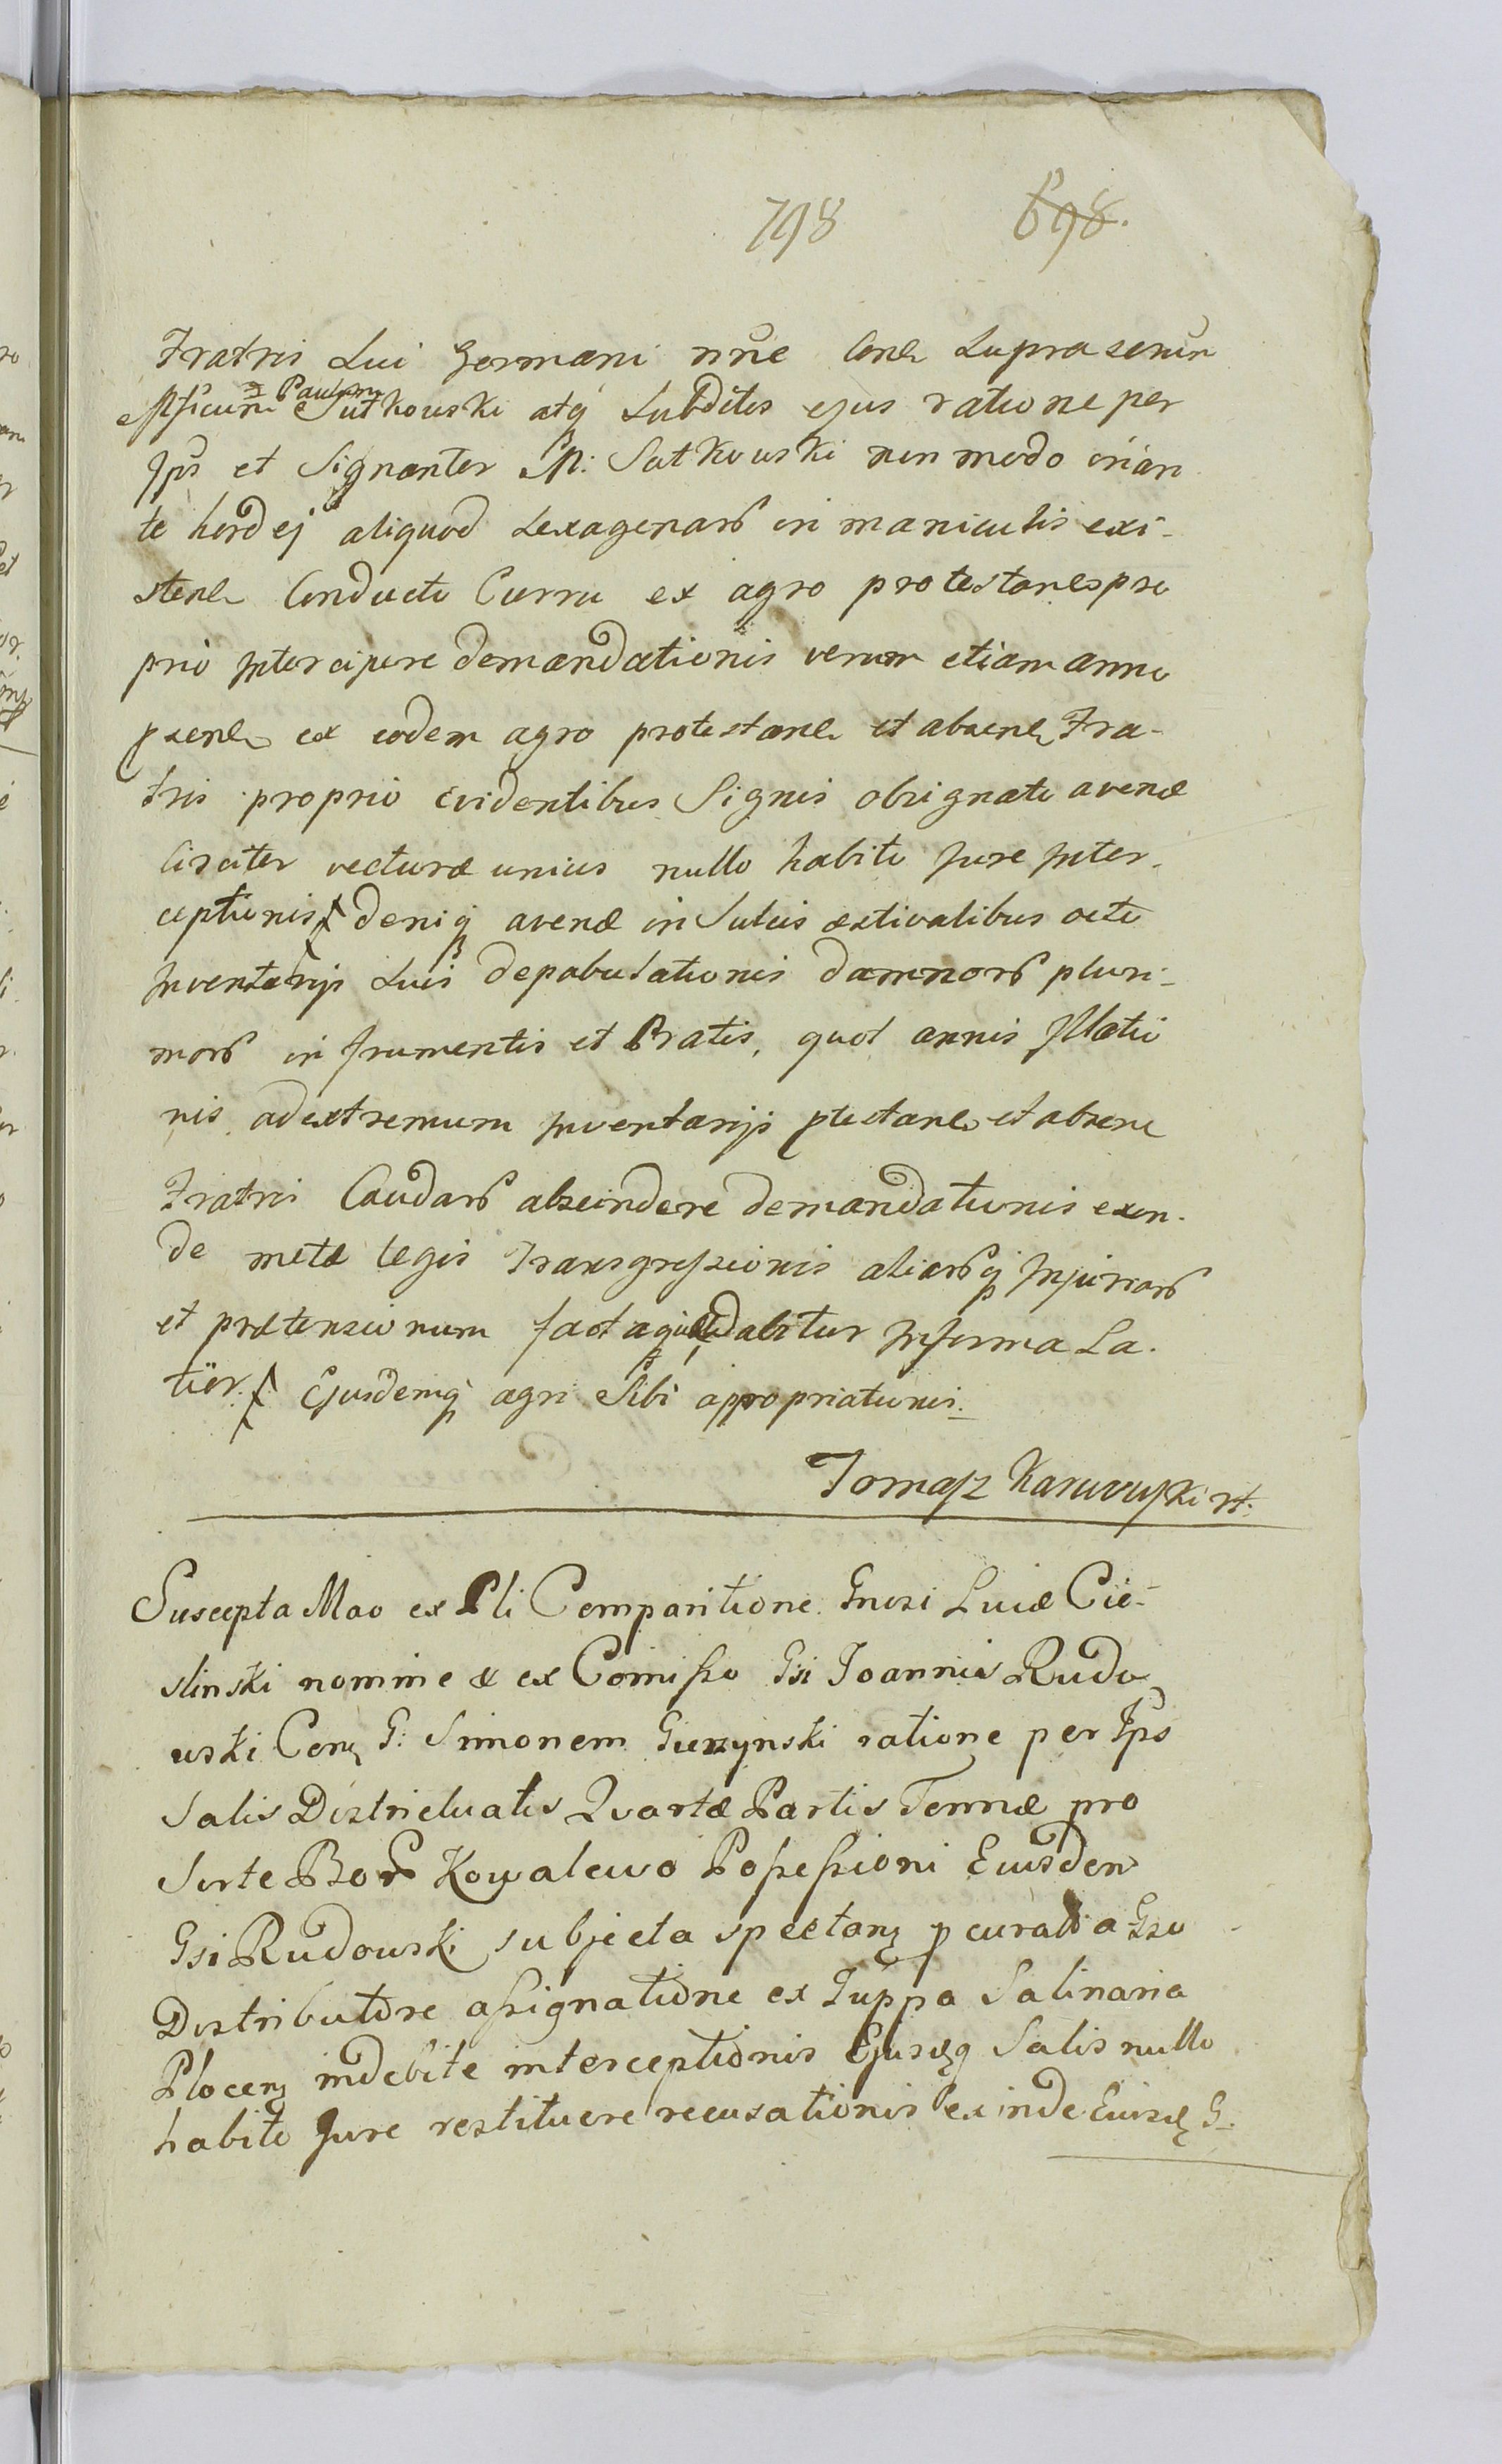 798 698.
Fratris Sui Germani nne Cone supra serum
Mficum Paulum Sutkouski atq Subditis ejus ratione per
Jps et Signanter M: Sutkouski non modo
te hordej aliquod sexagenarum in maniculis exi-
sten Conducto Curru ex agro protestanes pro
prio Intercipere demandationis verum etiam anno
psene ex eodem agro protestane et absene Fra-
tris proprio Evidentibus Signis obsignato avenæ
circiter vecturæ unius nullo habito Jure Inter-
ceptionis deniq avenæ in Sulcis æstivalibus octo
Inventarijs suis depabulationis damnorum pluri-
morum in frumentis et Pratis, quot annis Illatio
nis ad extremum Inventarijs ptestane et absene
Fratris Caudarum abscindere demandationis exin-
de metæ legis Transgressionis aliarumq Injuriarum
et prætensionum dabitur Informa La-
tiör. Ejusdemq agri Sibi appropriationis.
Tomasz
Suscepta Mao ex Pli Comparitione Gnosi Lucæ Cie-
slinski nomine & ex Comisso Gsi Joannis Rudo
uski Con G: Simonem ratione per Jps
Salis Districtualis Quartæ Partis Tonnæ pro
Sorte Bor Kowalewo Possessioni Eiusdem
Gsi Rudouski subjecta spectan p curato a Gso
Distributore assignatione ex Zuppa Salinaria
Plocen indebite interceptionis Ejusdq Salis nullo
habito Jure restituere recusationis exinde Eiusd G.